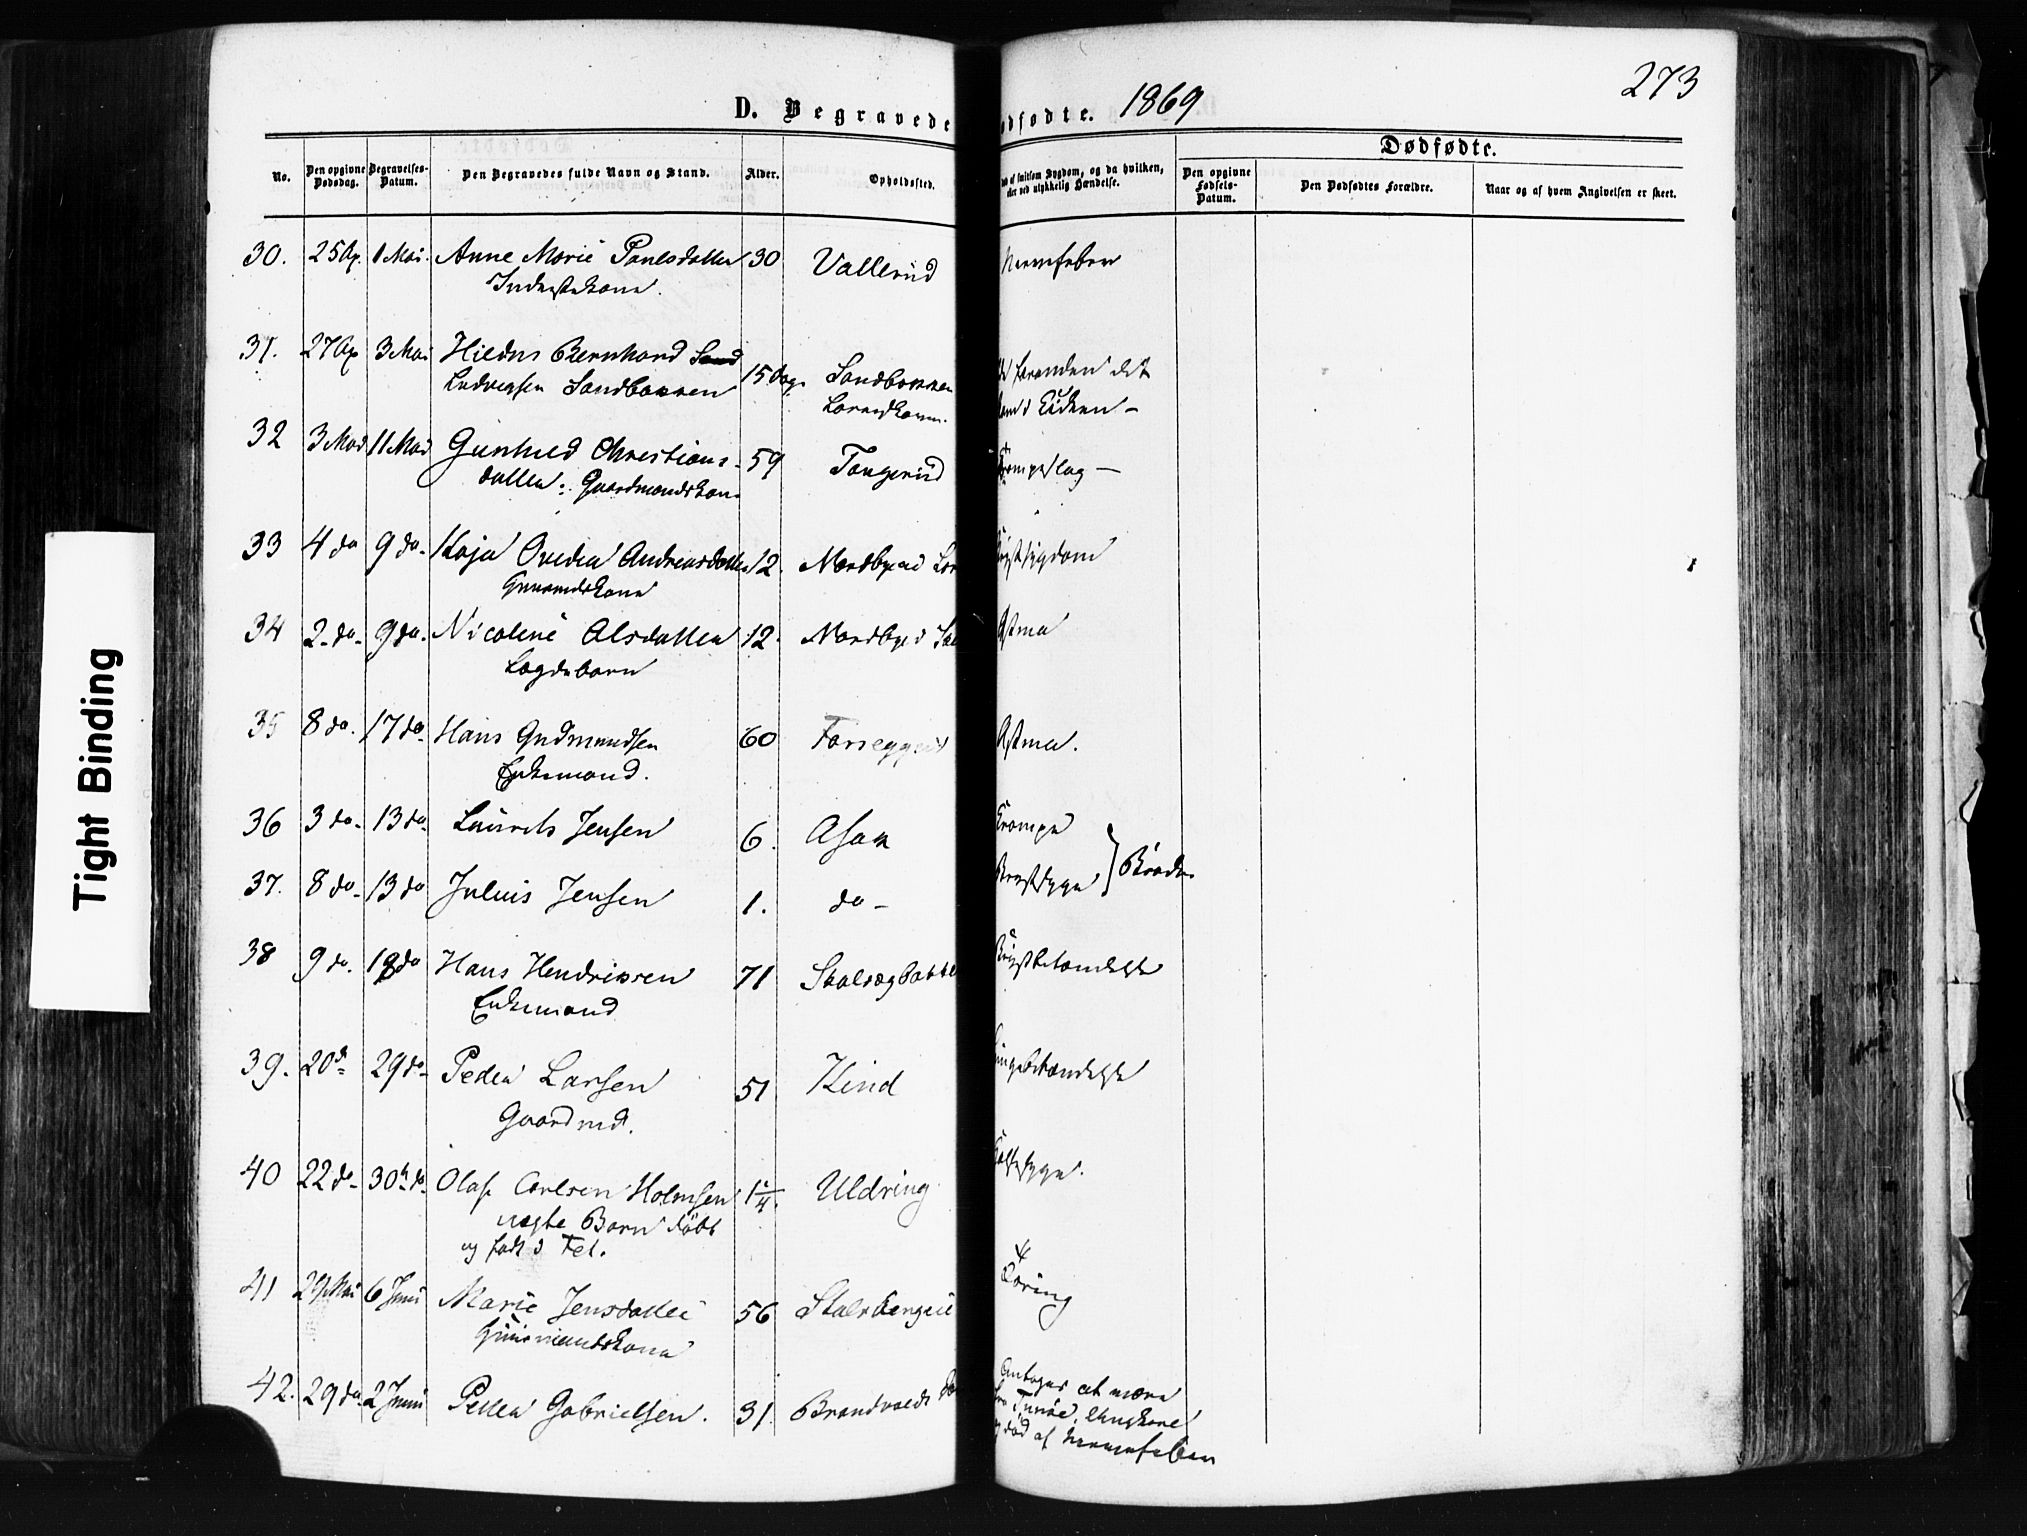 273
D. Begravede
ødfødte. 1869
Dødfødte.
No. Den opgivne Dødsdag. Begravelses-Datum. Den Begravedes fulde Navn og Stand. Alder. Opholdssted. af smitsom Sygdom, og da hvilken, eller ved ulykkelig Hændelse. Den opgivne Fødsels-Datum. Den Dødfødtes Forældre. Naar og af hvem Angivelsen er skeet.
30. 25 Ap. 1 Mai. Anne Marie Paulsdatter 30 Vallerud Nervefeber
Inderstekone.
31. 27 Ap 3 Mai Hildus Bernhard Sand
Ludvigsen Sandbakken 15 Dage Sandbakken
32 3 Mai 11 Mai Gunhild Christians- 59 Tangerud Krampeslag —
datter: Gaardmandskone
33 4 do 9 do- Kaja Ovedia Andreasdatter 12. Nordbye Brystsygdom
34 2- do- 9 do- Nicoline Olsdatter 12. Nordbye Astma
Lægdebarn
35 8 do. 17 do- Hans Gudmundsen 60 Astma.
Enkemand.
36 3 do- 13 do- Laurits Jensen 6. Asak Krampe
37. 8 do- 13 do Julius Jensen 1. do - Brystsyge } Brødre
38 9 do. 18 do Hans Hendriksen 71 Brystbetændelse
Enkemand
39. 20 d. 29 do- Peder Larsen 51 Kind Lungebetændelse
Gaardmd.
40 22 do- 30 do- Olaf Carlsen Holmsen 1 1/4. Uldring
ægte Barn døbt
og født i Fet.
41 29 Mai 6 Juni Marie Jensdatter 56 Tæring
Huusmandskone
42. 29 do 2 Juni Peder Gabrielsen. 31. Brandvolds Antages at være
fra Tunøe, Ungkarl
og død af Nervefeber
Tight Binding